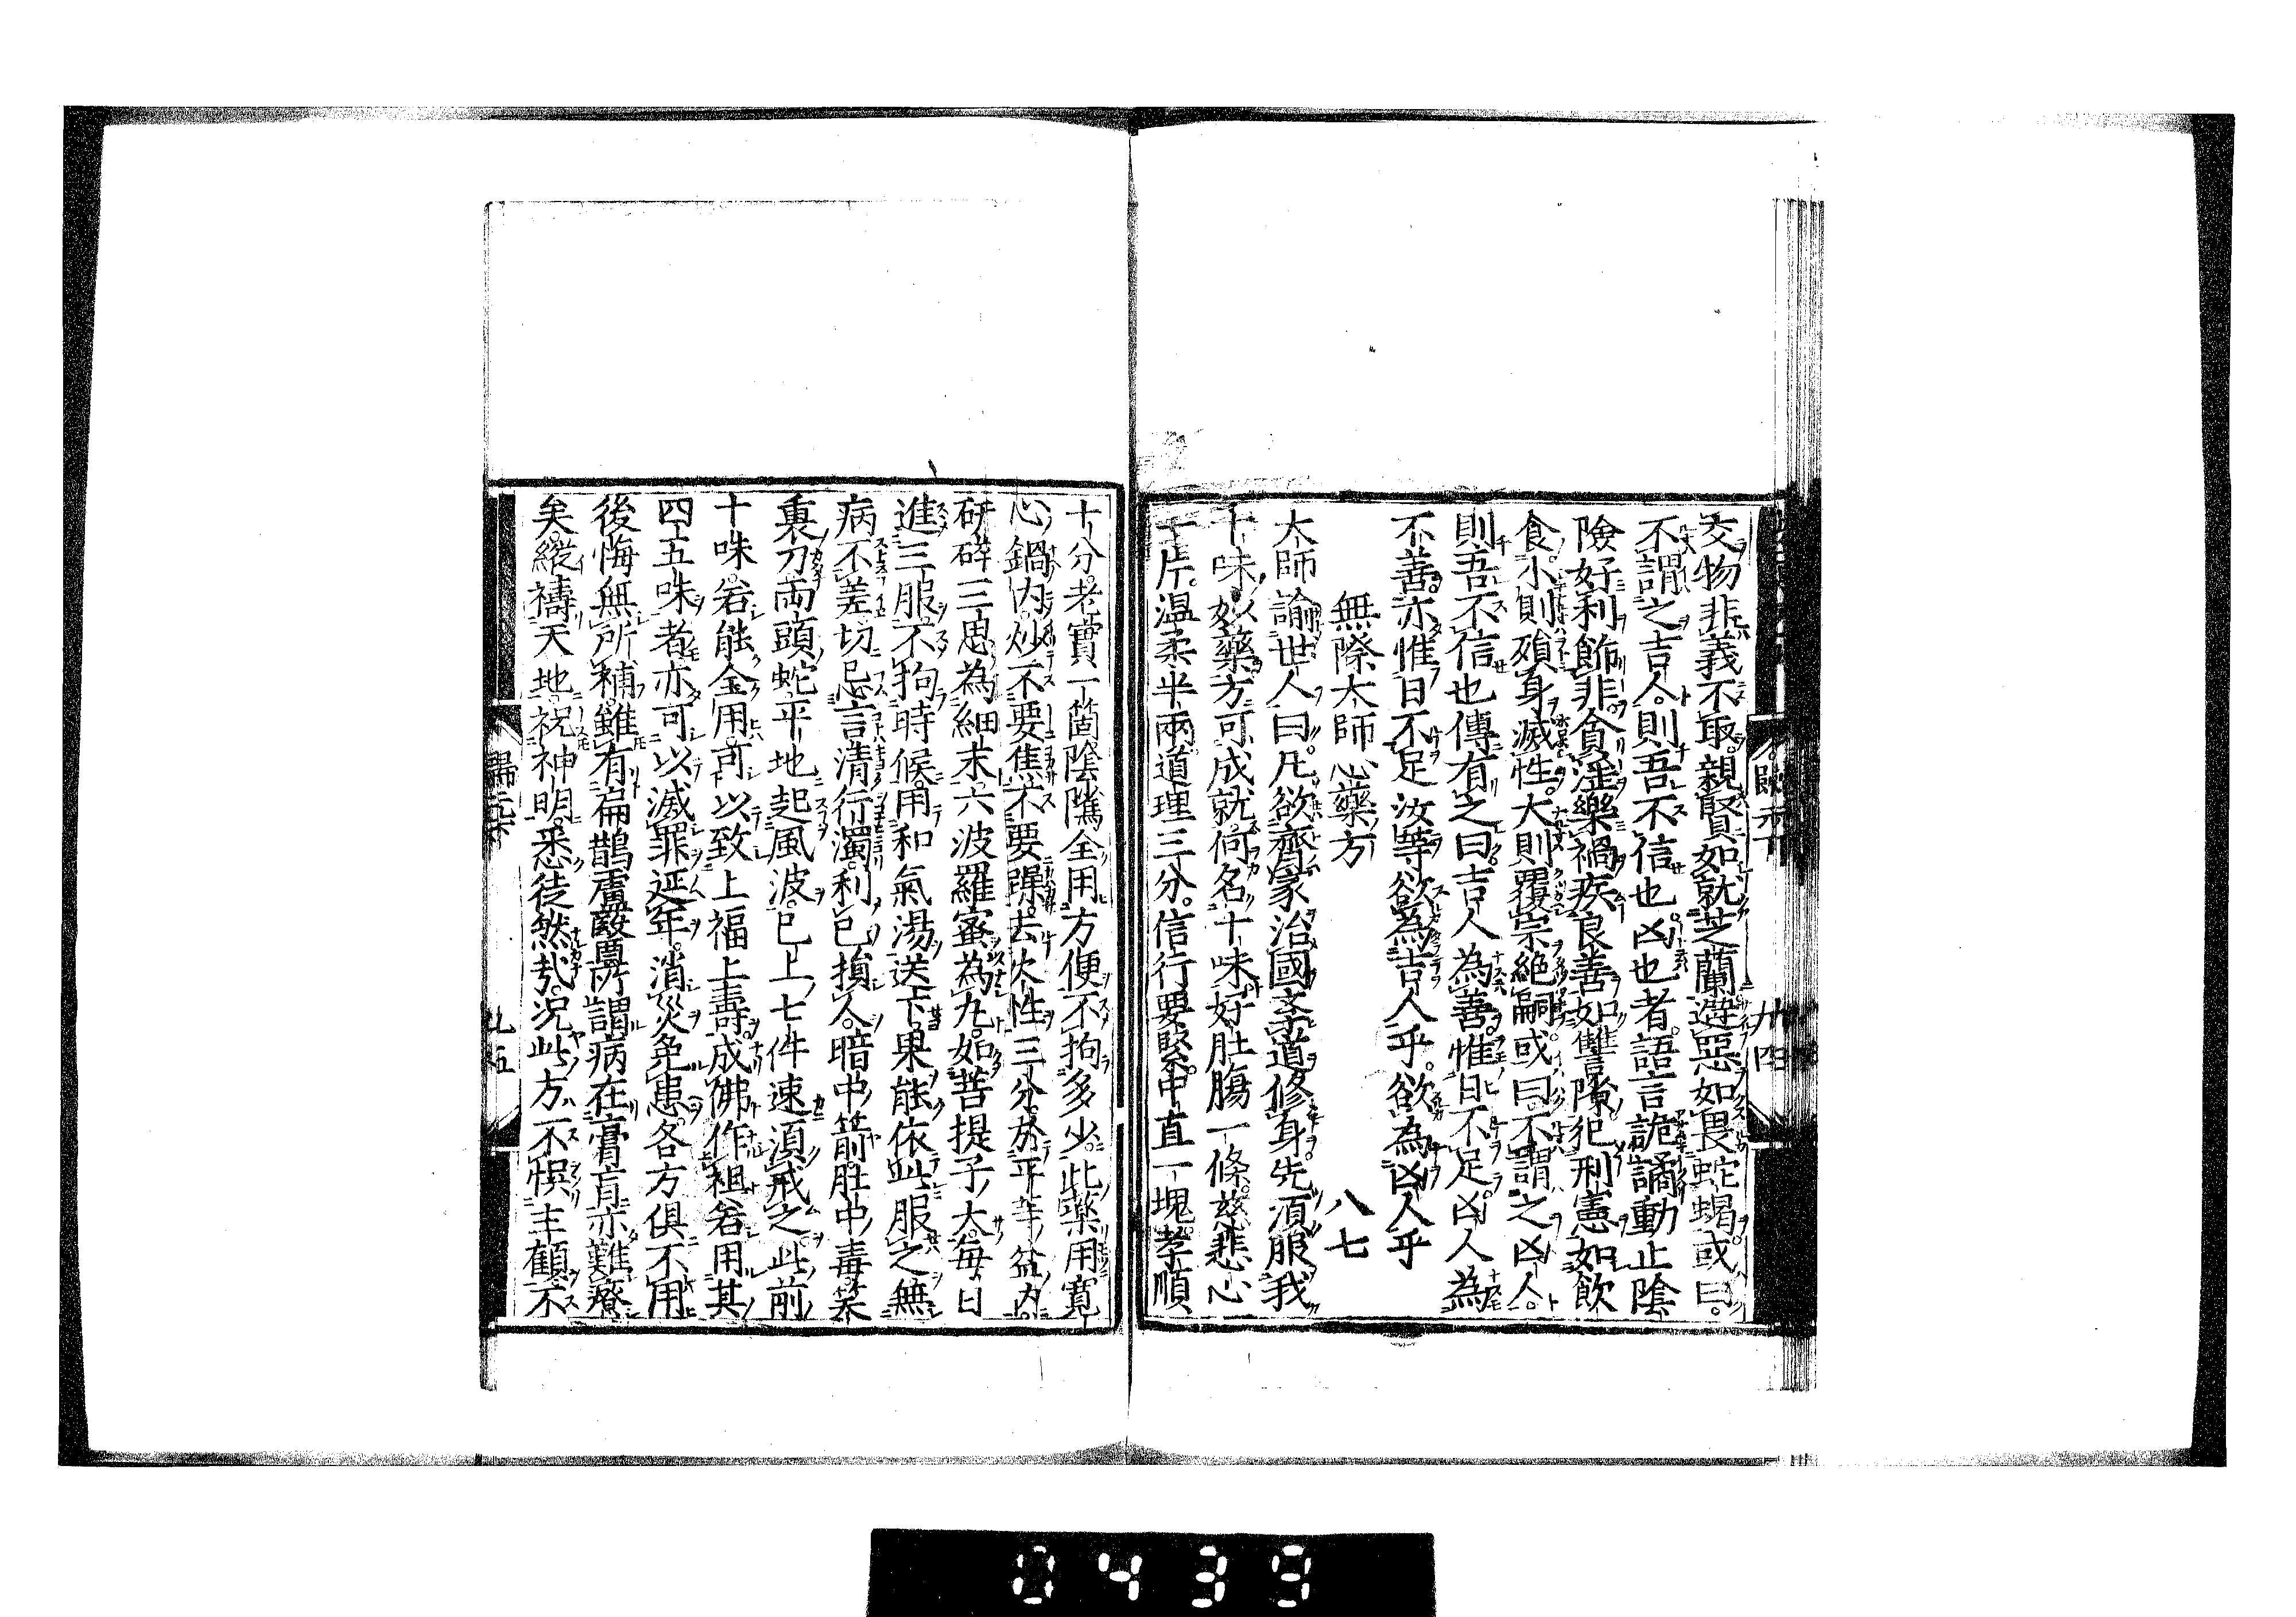 交物非義不取。親賢如就芝蘭避惡如畏蛇蝎。或曰。
不謂之吉人。則吾不信也。凶也者。語言詭譎動止陰
險好利飾非。貪滛樂禍疾良善如讐隙犯刑憲如飲
食。小則殞身滅性。大則覆宗絶嗣。或曰不謂之凶人。
則吾不信也傳有之曰。吉人為善。惟日不足。凶人為
不善。亦惟日不足汝等欲為吉人乎。欲為凶人乎
無際大師心藥方 八七
大師諭世人曰。凡欲齊家治國孝道修身。先須服我
十味妙藥方可成就。何名十味好肚膓一條。慈悲心
一片。温柔半兩。道理三分。信行要緊。中直一塊。孝順
十分。老實一箇。陰隲全用方便不拘多少。此藥用寛
心鍋内。炒不要焦不要躁。去火性三分。於平等盆内。
研碎三思為細末六波羅蜜為丸。如菩提子大。每日
進三服不拘時候。用和氣湯送下。果能依此服之無
病不差切忌言清行濁。利己損人。暗中箭。肚中毒。笑
裏刀兩頭蛇平地起風波。已上七件速須戒之。此前
十味。若能全用。可以致上福上壽。成佛作祖。若用其
四五味者亦可以滅罪延年。消災免患。各方俱不用
後悔無所補。雖有扁鵲盧醫所謂病在膏肓亦難療
矣。縱禱天地。祝神明。悉徒然哉。況此方不悞主顧不
卅四
九五
0439